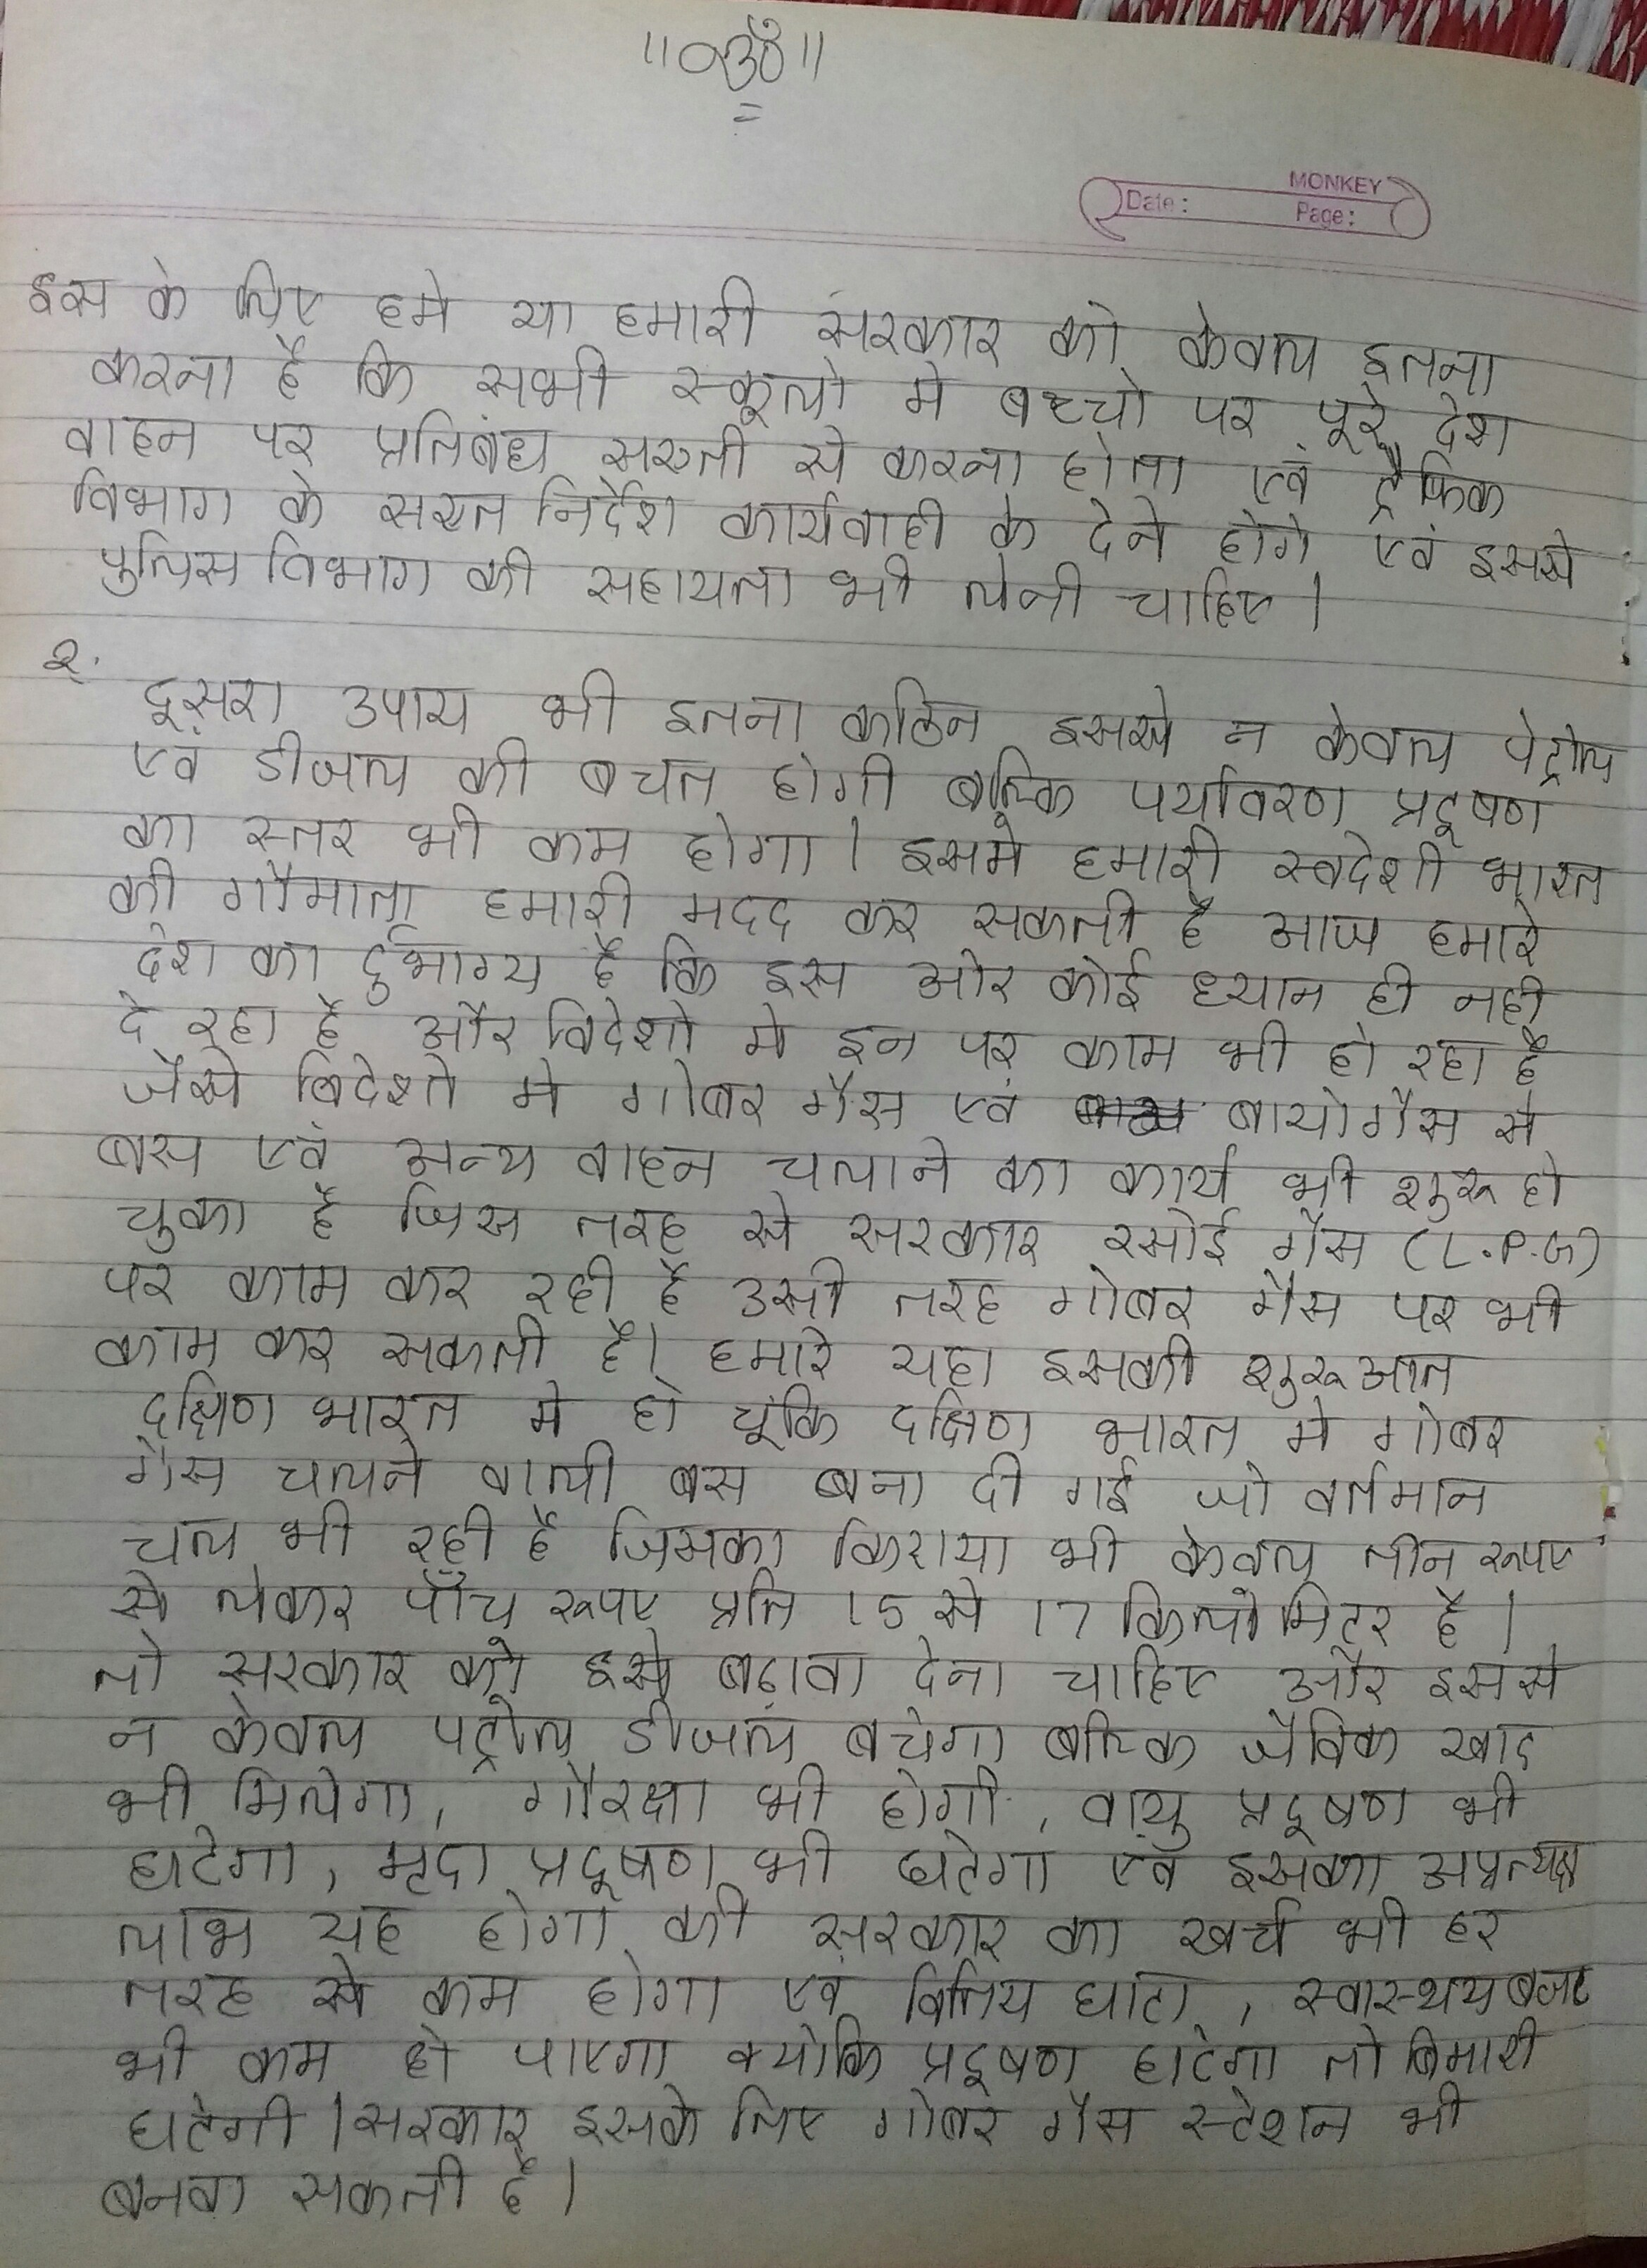 ॥ ॐ ॥
MONKEY
Date :
Page :
इस के लिए हमे या हमारी सरकार को केवल इतना
करना है कि सभी स्कूलो मे बच्चो पर पूरे देश
वाहन पर प्रतिबंध सख्ती से करना होता एवं ट्रैफिक
विभाग के सख्त निर्देश कार्यवाही के देने होगे एवं इससे
पुलिस विभाग की सहायता भी लेनी चाहिए ।
२.
दूसरा उपाय भी इतना कठिन इससे न केवल पेट्रोल
एवं डीजल की बचत होगी बल्कि पर्यावरण प्रदूषण
का स्तर भी कम होगा । इसमे हमारी स्वदेशी भारत
की गौमाता हमारी मदद कर सकती है आज हमारे
देश का दुर्भाग्य है कि इस ओर कोई ध्यान ही नही
दे रहा है और विदेशो मे इन पर काम भी हो रहा है
जैसे विदेशो मे गोबर गैस एवं बायोगैस से
बस एवं अन्य वाहन चलाने का कार्य भी शुरू हो
चुका है जिस तरह से सरकार रसोई गैस (L.P.G)
पर काम कर रही है उसी तरह गोबर गैस पर भी
काम कर सकती है। हमारे यहा इसकी शुरूआत
दक्षिण भारत मे हो चूकि दक्षिण भारत मे गोबर
गैस चलने वाली बस बना दी गई जो वर्तमान
चल भी रही है जिसका किराया भी केवल तीन रूपए
से लेकर पाँच रूपए प्रति 15 से 17 किलोमिटर है ।
तो सरकार को इसे बढावा देना चाहिए और इससे
न केवल पट्रोल डीजल बचेगा बल्कि जैविक खाद
भी मिलेगा, गौरक्षा भी होगी, वायु प्रदूषण भी
घटेगा, मृदा प्रदूषण भी घटेगा एवं इसका अप्रत्यक्ष
लाभ यह होगा की सरकार का खर्च भी हर
तरह से कम होगा एवं वित्तिय घाटा, स्वास्थय बजट
भी कम हो पाएगा क्योकि प्रदूषण घटेगा तो बिमारी
घटेगी । सरकार इसके लिए गोबर गैस स्टेशन भी
बनवा सकती है ।